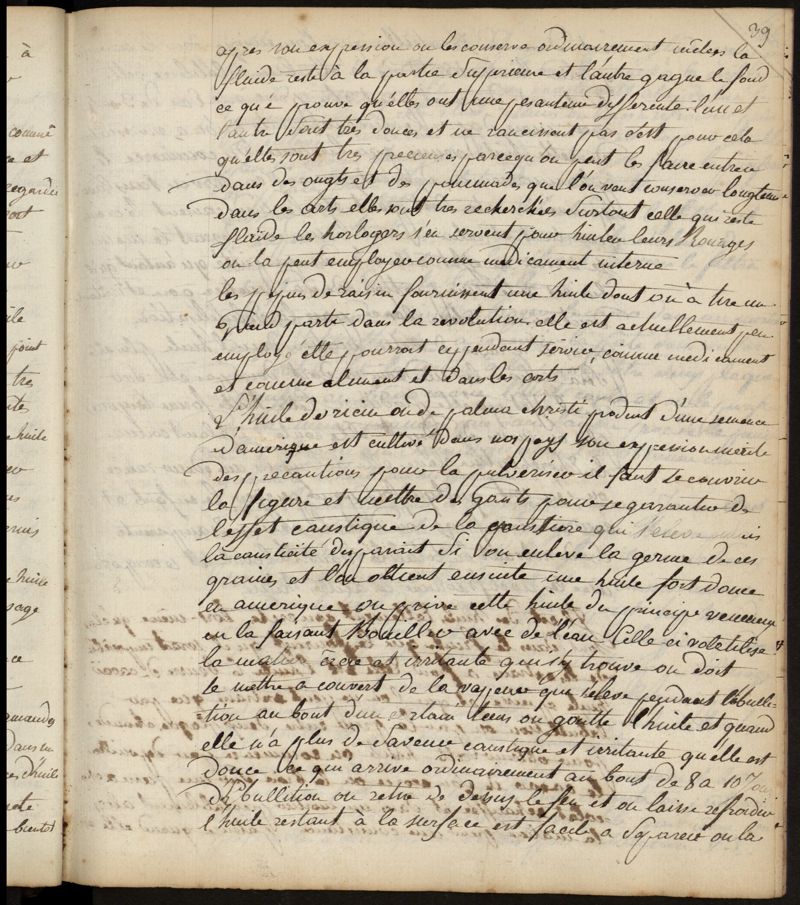 39
apres son expression on les conserve ordinairement mêlees la
fluide reste à la partie Superieure et l'autre gagne le fond
ce qui prouve qu'elles ont une pesanteur differente. l'un et
l'autre Sont tres douces et ne rancissent pas c'est pour cela
qu'elles sont tres precieuses parcequ'on peut les faire entrer
dans des ongts et des pommades que l'on veut conserver longtems
dans les arts elles sont tres recherchées Surtout celle qui reste
fluide les horlogers s'en servent pour huiler leurs Rouages
on la peut employer comme medicament interne
les pepins de raisin fournissent une huile dont on à tiré un
grand parti dans la revolution elle est actuellement peu
employé elle pourroit cependant servir comme medicament
et comme aliment et dans les arts
L'huile de ricin ou de palma christi produit d'une semence
d'amerique est cultivé dans nos pays son expression merite
des precautions pour la pulveriser il faut se couvrir
la figure et mettre des gants pour se garantir de
l'effet caustique de la poussiere qui s'eleve mais
la causticité disparait Si on enleve la germe de ces
graines et l'on obtient ensuite une huile fort douce
en amerique on prive cette huile du principe veneneux
en la faisant Bouillir avec de l'eau Celle ci volatilise
la matiere âcre et irritante qui s'y trouve on doit
se mettre a couvert de la vapeur qui s'éleve pendant l'ebulli-
tion au bout d'un certain tems on goutte l'huile et quand
elle n'a plus de Saveur caustique et irritante qu'elle est
douce ce qui arrive ordinairement au bout de 8 a 10 Jours
d'ebullition on retire de dessus le feu et on laisse refroidir
l'huile restant à la surface est facile a Separer on la
à
comme
et
regarde
point
tres
huile
huile
sage
amandes
dans un
d'huile
bientot